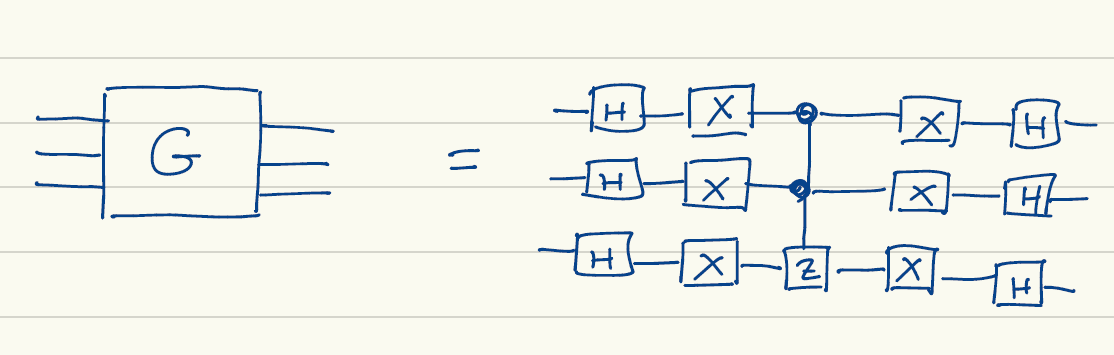 H X X H
G = H X X H
H X Z X H